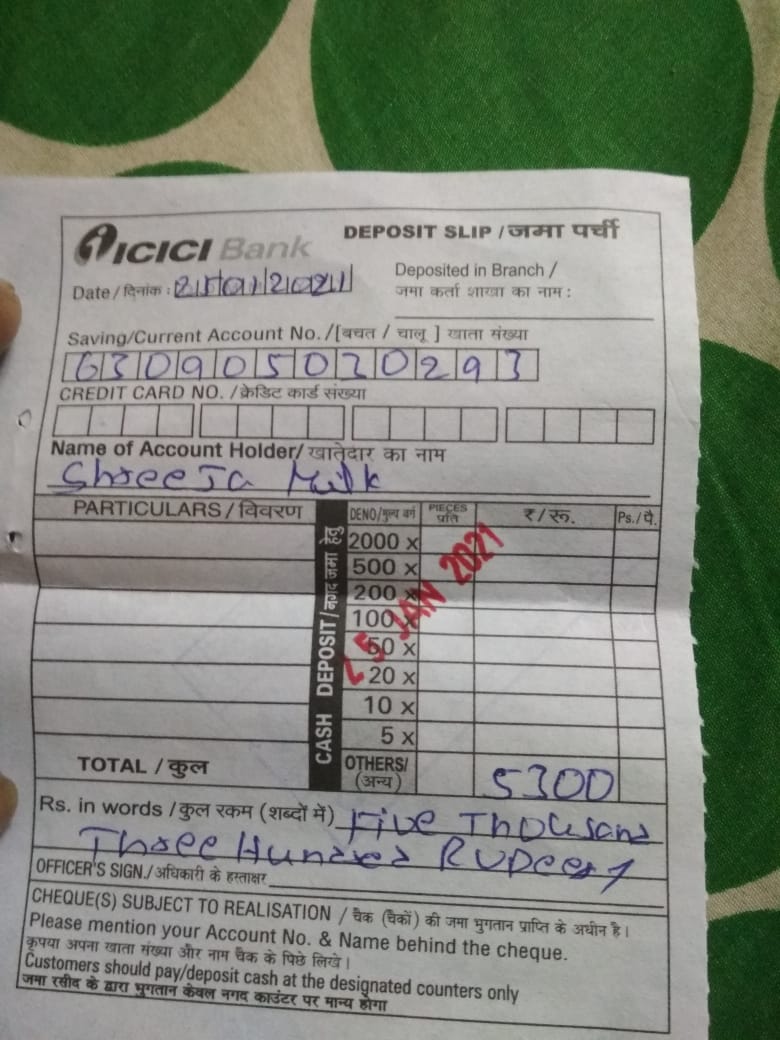 ICICI Bank
DEPOSIT SLIP / जमा पर्ची
Date / दिनांक : 25 01 2021
Deposited in Branch /
जमा कर्ता शाखा का नाम :
Saving/Current Account No. /[बचत / चालू ] खाता संख्या
CREDIT CARD NO. / क्रेडिट कार्ड संख्या
Name of Account Holder/ खातेदार का नाम
Shreeja Milk
PARTICULARS / विवरण
CASH DEPOSIT/नगद जमा हेतु
DENO/मूल्य वर्ग PIECES प्रति ₹/रू. Ps./पै.
2000 x
500 x
200 x
100 x
50 x
20 x
10 x
5 x
25 JAN 2021
TOTAL / कुल
OTHERS/ (अन्य) 5300
Rs. in words / कुल रकम (शब्दों में) Five Thousand
Three Hundred Rupees
OFFICER'S SIGN./ अधिकारी के हस्ताक्षर
CHEQUE(S) SUBJECT TO REALISATION / चैक (चैकों) की जमा भुगतान प्राप्ति के अधीन है।
Please mention your Account No. & Name behind the cheque.
कृपया अपना खाता संख्या और नाम चैक के पिछे लिखे।
Customers should pay/deposit cash at the designated counters only
जमा रसीद के द्वारा भुगतान केवल नगद काउंटर पर मान्य होगा